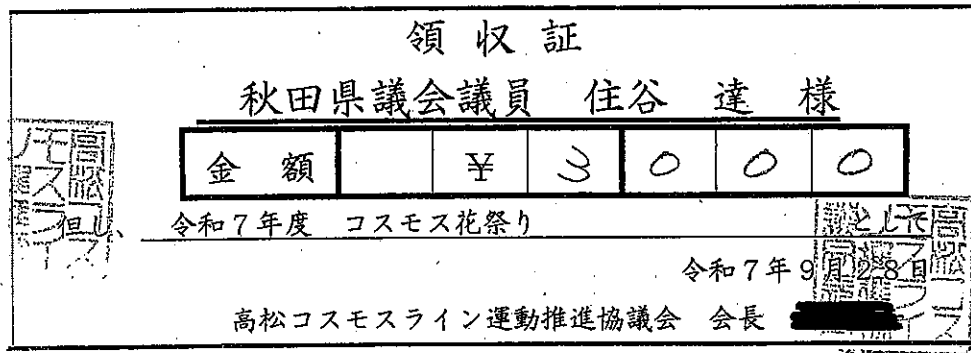 領収証
秋田県議会議員 住谷 達 様
金額 ¥3000
但し、令和7年度 コスモス花祭り として
令和7年9月28日
高松コスモスライン運動推進協議会 会長